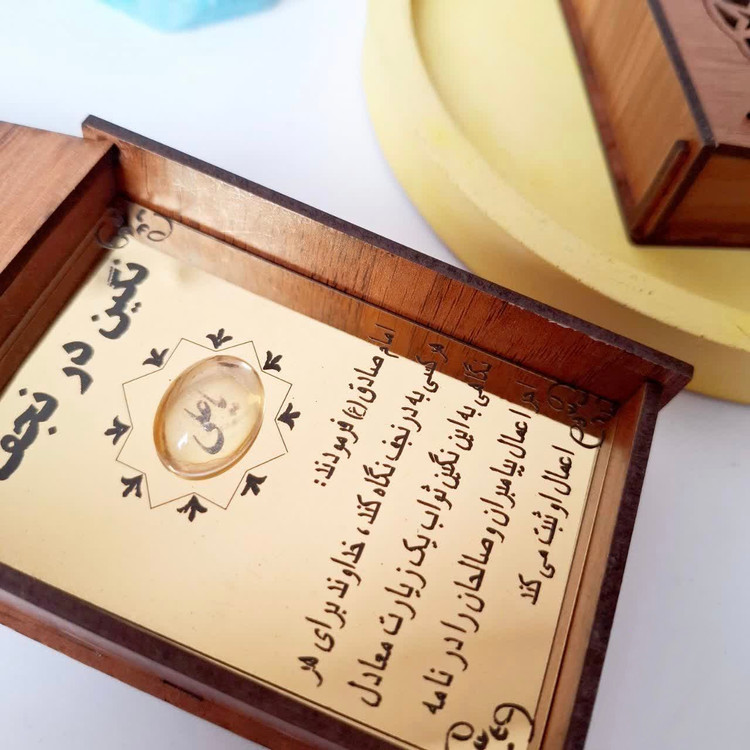 نگین در نجف
یا علی
امام صادق (ع) فرمودند:
هر کسی به در نجف نگاه کند، خداوند برای هر
نگاهی به این نگین ثواب یک زیارت معادل
اجر اعمال پیامبران و صالحان را در نامه
اعمال او ثبت می کند